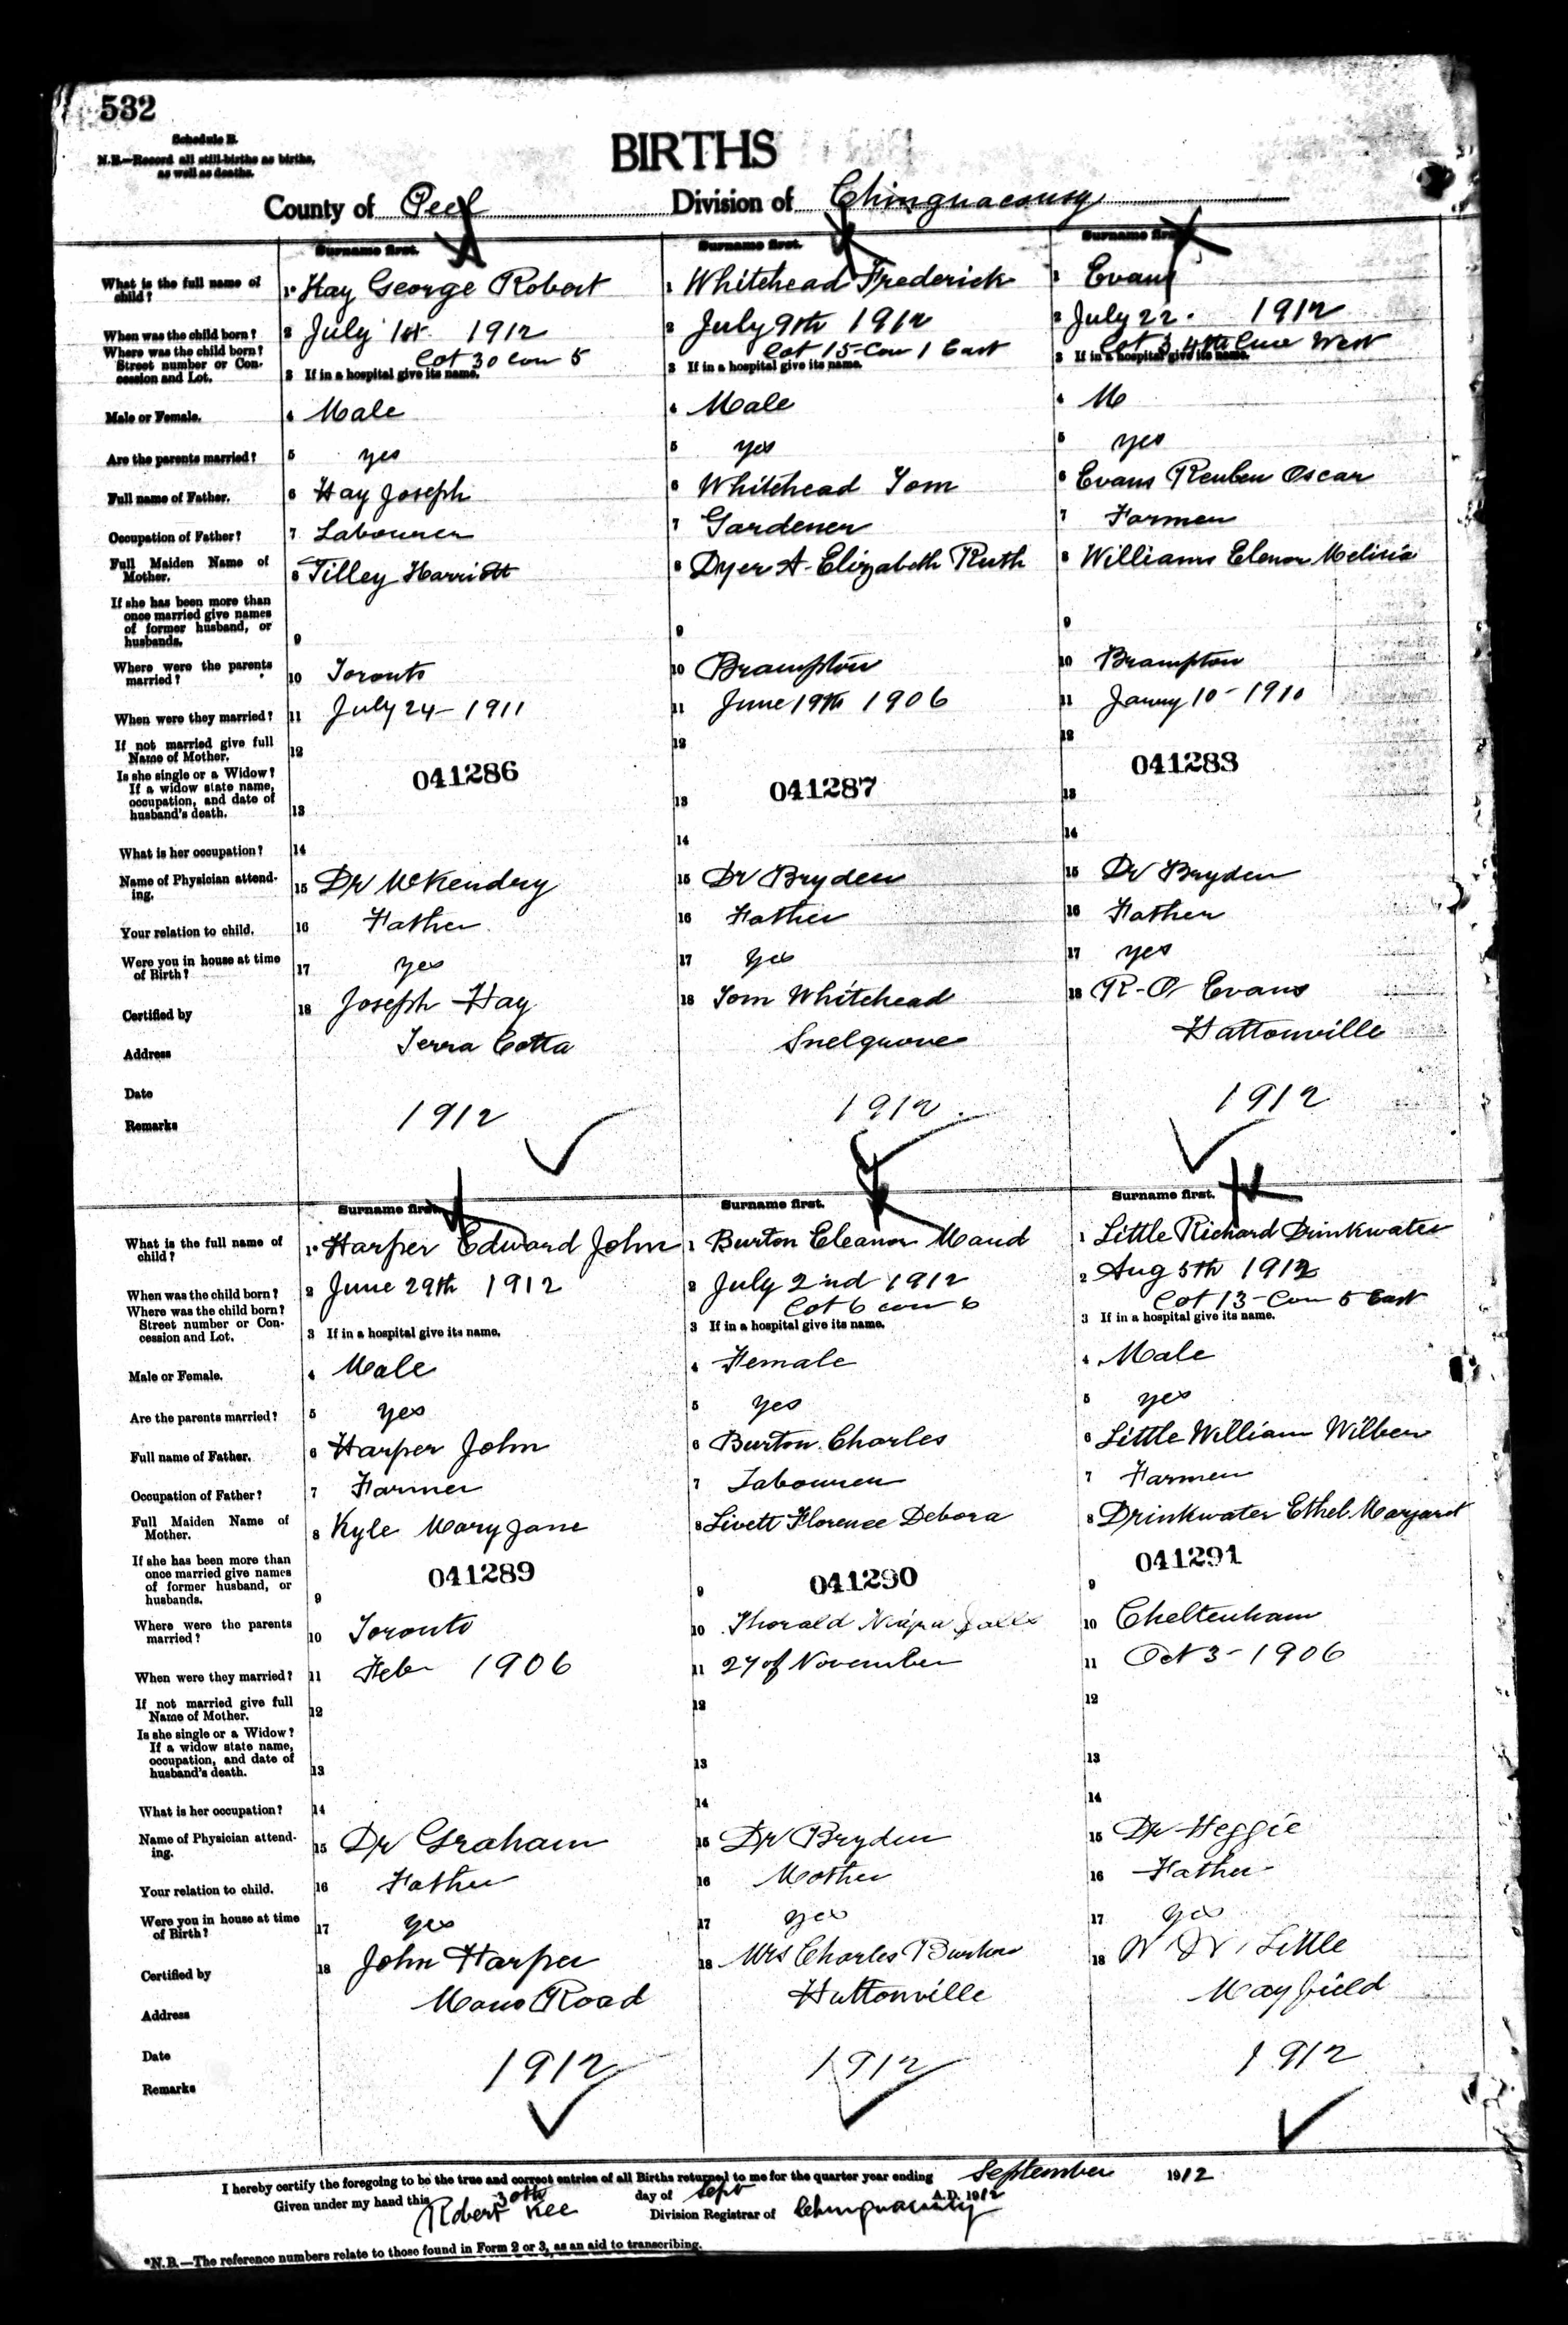 532
Schedule B.
N.B.—Record all still-births as births,
as well as deaths.
BIRTHS
County of Peel Division of Chinguacousy
Surname first. Surname first. Surname first.
What is the full name of child? 1* Hay George Robert 1 Whitehead Frederick 1 Evans
When was the child born? 2 July 1st 1912 2 July 9th 1912 2 July 22. 1912
Where was the child born? Lot 30 Con 5 Lot 15 Con 1 East Lot 3 4th Line West
Street number or Concession and Lot. 3 If in a hospital give its name. 3 If in a hospital give its name. 3 If in a hospital give its name.
Male or Female. 4 Male 4 Male 4 M
Are the parents married? 5 yes 5 yes 5 yes
Full name of Father. 6 Hay Joseph 6 Whitehead Tom 6 Evans Reuben Oscar
Occupation of Father? 7 Labourer 7 Gardener 7 Farmer
Full Maiden Name of Mother. 8 Tilley Harriett 8 Dyer A. Elizabeth Ruth 8 Williams Elenor Melisia
If she has been more than once married give names of former husband, or husbands. 9 9 9
Where were the parents married? 10 Toronto 10 Brampton 10 Brampton
When were they married? 11 July 24 - 1911 11 June 19th 1906 11 Janny 10 - 1910
If not married give full Name of Mother. 12 12 12
Is she single or a Widow? If a widow state name, occupation, and date of husband's death. 13 041286 13 041287 13 041288
What is her occupation? 14 14 14
Name of Physician attending. 15 Dr McKendry 15 Dr Bryden 15 Dr Bryden
Your relation to child. 16 Father 16 Father 16 Father
Were you in house at time of Birth? 17 yes 17 yes 17 yes
Certified by 18 Joseph Hay 18 Tom Whitehead 18 R. O. Evans
Address Terra Cotta Snelgrove Huttonville
Date 1912 1912 1912
Remarks
Surname first. Surname first. Surname first.
What is the full name of child? 1* Harper Edward John 1 Burton Eleanor Maud 1 Little Richard Drinkwater
When was the child born? 2 June 29th 1912 2 July 2nd 1912 2 Aug 5th 1912
Where was the child born? Lot 6 con 6 Lot 13 - Con 5 East
Street number or Concession and Lot. 3 If in a hospital give its name. 3 If in a hospital give its name. 3 If in a hospital give its name.
Male or Female. 4 Male 4 Female 4 Male
Are the parents married? 5 yes 5 yes 5 yes
Full name of Father. 6 Harper John 6 Burton Charles 6 Little William Wilber
Occupation of Father? 7 Farmer 7 Labourer 7 Farmer
Full Maiden Name of Mother. 8 Kyle Mary Jane 8 Livett Florence Debora 8 Drinkwater Ethel Margaret
If she has been more than once married give names of former husband, or husbands. 9 041289 9 041290 9 041291
Where were the parents married? 10 Toronto 10 Thorald Niagra Falls 10 Cheltenham
When were they married? 11 Feb 1906 11 27 of November 11 Oct 3 - 1906
If not married give full Name of Mother. 12 12 12
Is she single or a Widow? If a widow state name, occupation, and date of husband's death. 13 13 13
What is her occupation? 14 14 14
Name of Physician attending. 15 Dr Graham 15 Dr Bryden 15 Dr Heggie
Your relation to child. 16 Father 16 Mother 16 Father
Were you in house at time of Birth? 17 yes 17 yes 17 yes
Certified by 18 John Harper 18 Mrs Charles Burton 18 W. W. Little
Address Mono Road Huttonville Mayfield
Date 1912 1912 1912
Remarks
I hereby certify the foregoing to be the true and correct entries of all Births returned to me for the quarter year ending September 1912
Given under my hand this 30th day of Sept A.D. 1912
Robert Kee Division Registrar of Chinguacousy
*N.B.—The reference numbers relate to those found in Form 2 or 3, as an aid to transcribing.